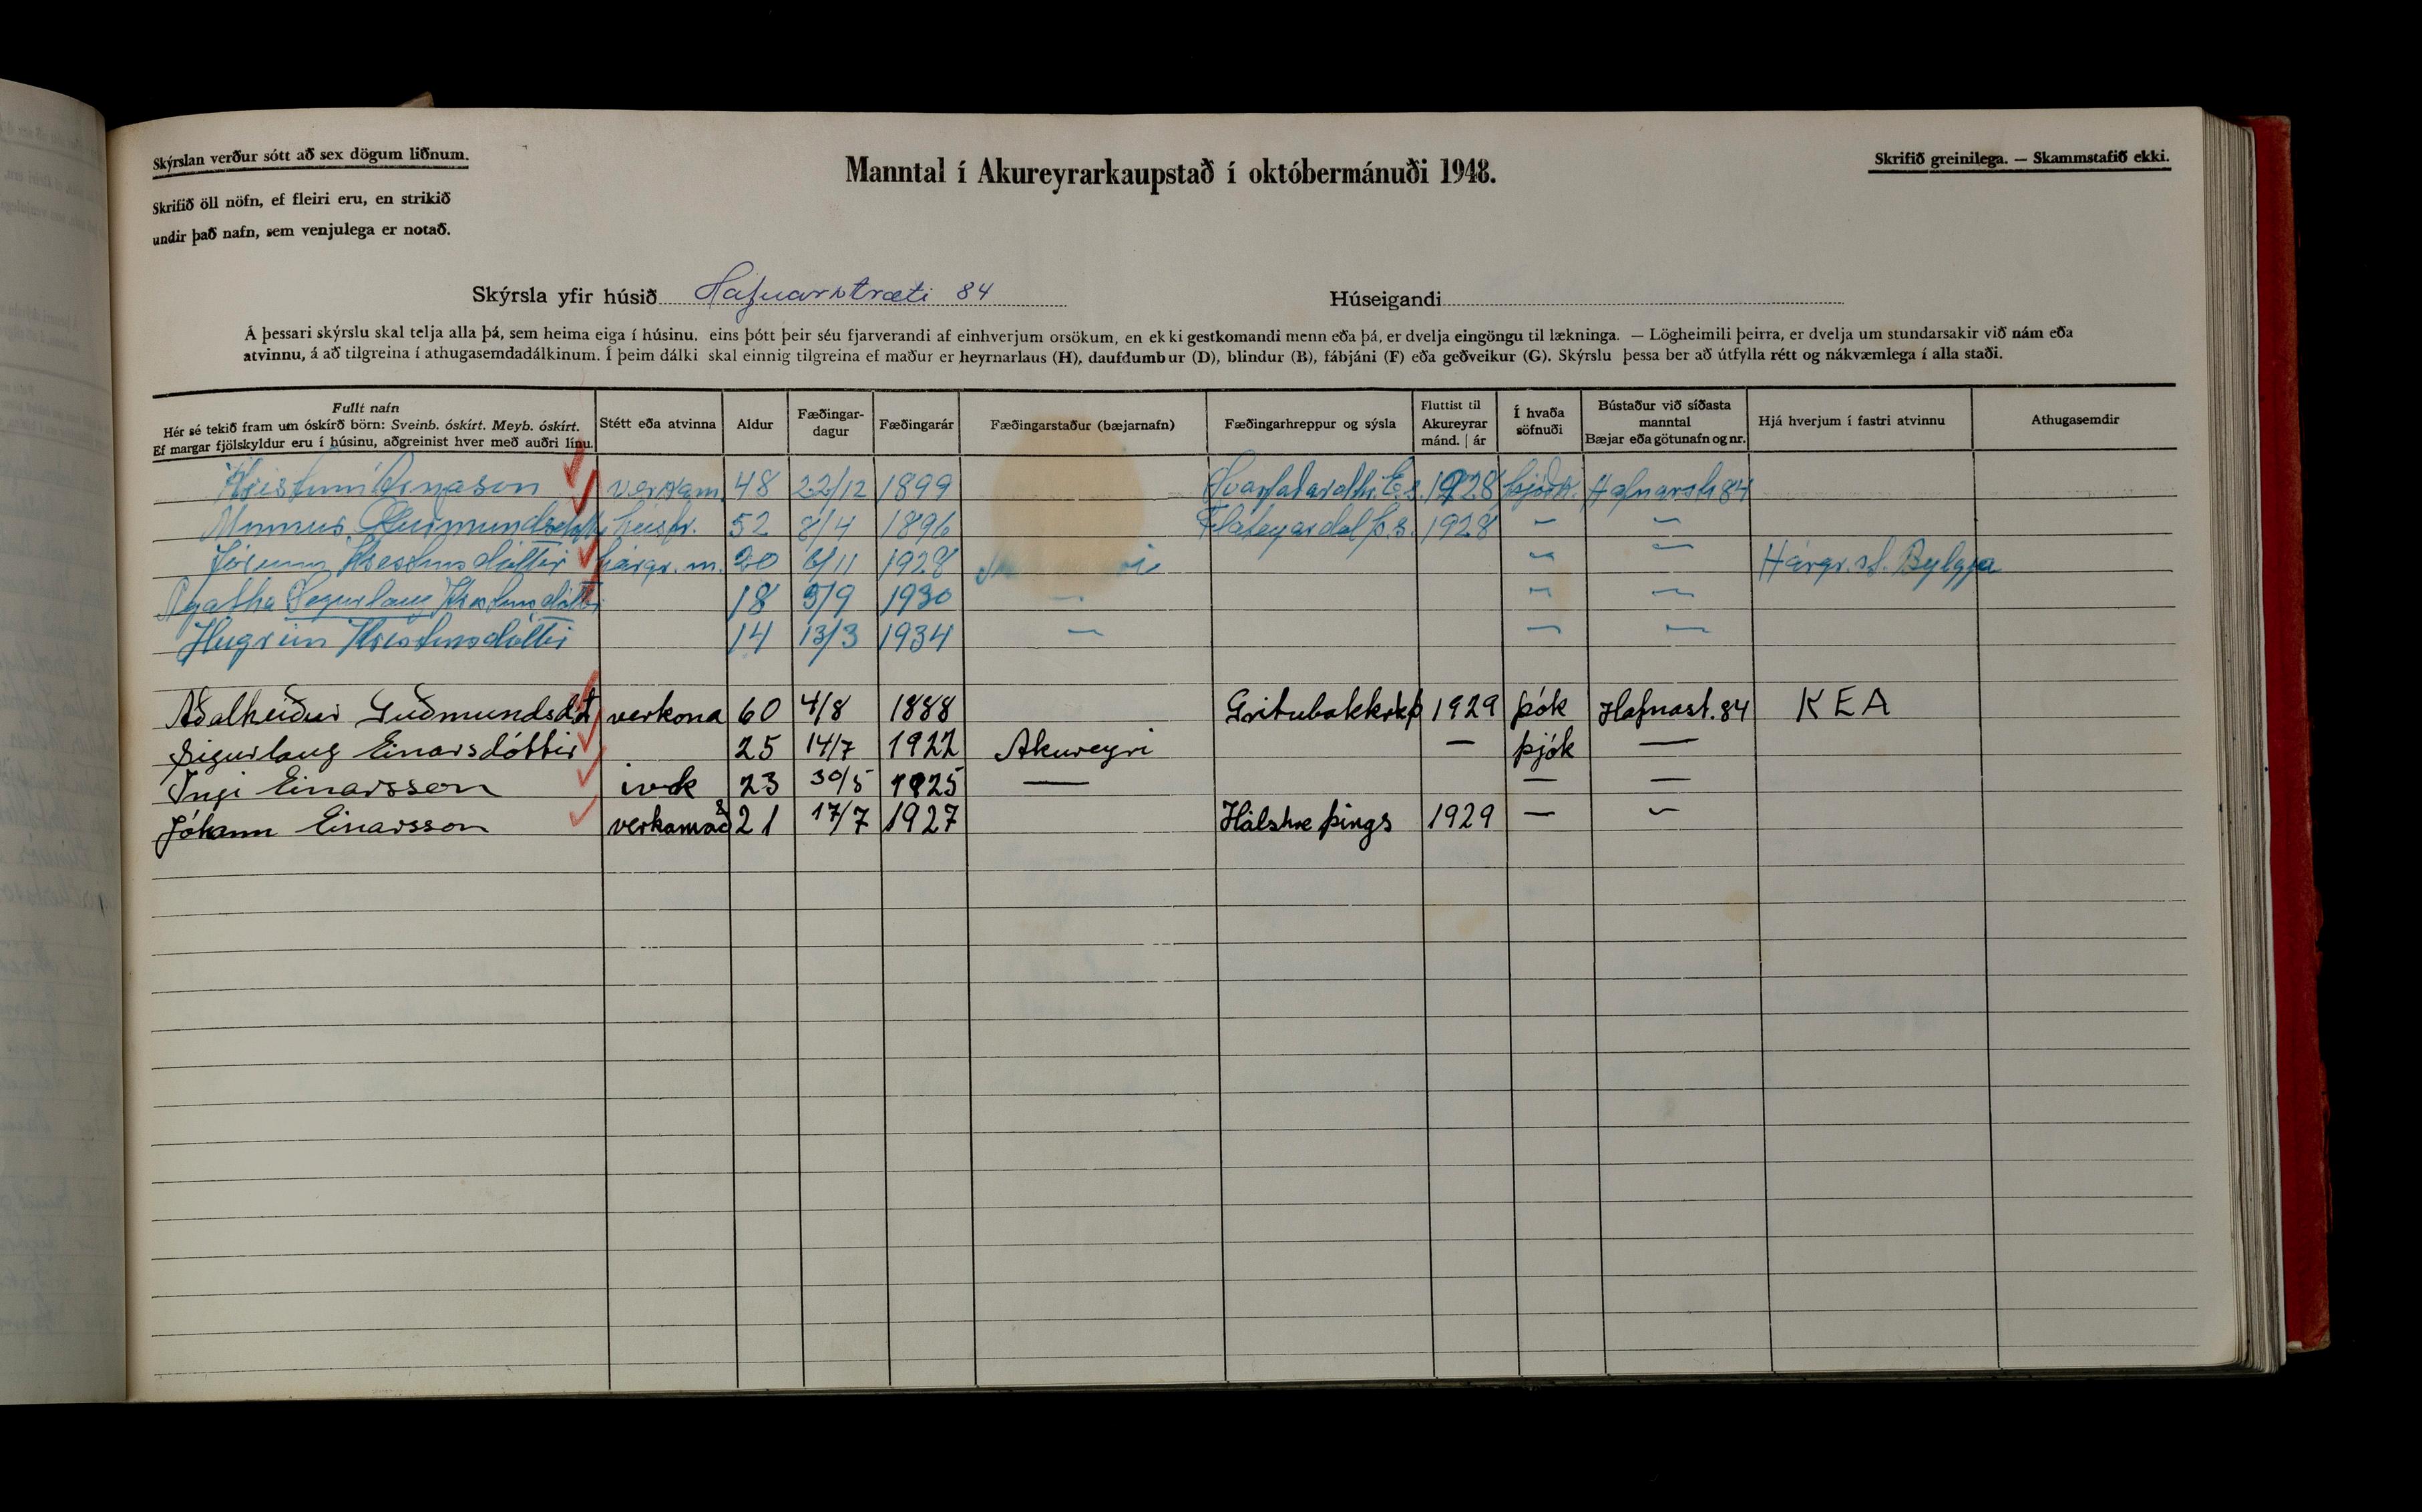 Skýrslan verður sótt að sex dögum liðnum.
Manntal í Akureyrarkaupstað í októbermánuði 1948.
Skrifið greinilega. — Skammstafið ekki.
Skrifið öll nöfn, ef fleiri eru, en strikið
undir það nafn, sem venjulega er notað.
Skýrsla yfir húsið Hafnarstræti 84 Húseigandi
Á þessari skýrslu skal telja alla þá, sem heima eiga í húsinu, eins þótt þeir séu fjarverandi af einhverjum orsökum, en ekki gestkomandi menn eða þá, er dvelja eingöngu til lækninga. — Lögheimili þeirra, er dvelja um stundarsakir við nám eða
atvinnu, á að tilgreina í athugasemdadálkinum. Í þeim dálki skal einnig tilgreina ef maður er heyrnarlaus (H), daufdumbur (D), blindur (B), fábjáni (F) eða geðveikur (G). Skýrslu þessa ber að útfylla rétt og nákvæmlega í alla staði.
Fullt nafn
Hér sé tekið fram um óskírð börn: Sveinb. óskírt. Meyb. óskírt.
Ef margar fjölskyldur eru í húsinu, aðgreinist hver með auðri línu.
Stétt eða atvinna
Aldur
Fæðingar-
dagur
Fæðingarár
Fæðingarstaður (bæjarnafn)
Fæðingarhreppur og sýsla
Fluttist til
Akureyrar
mánd. | ár
Í hvaða
söfnuði
Bústaður við síðasta
manntal
Bæjar eða götunafn og nr.
Hjá hverjum í fastri atvinnu
Athugasemdir
verkam 48 22/12 1899 1928 þjóðk. Hafnarstr 84
Guðmundsdóttir 52 8/4 1896 Flateyardal þ.s. 1928 — —
Jórunn Kristinsdóttir hárgr. m. 20 6/11 1928 — — Hárgr. st. Bylgja
Agatha Segurlaug Kristinsdóttir 18 5/9 1930 — — —
Hugrún Kristinsdóttir 14 13/3 1934 — — —
Aðalheiður Guðmundsdót verkona 60 4/8 1888 1929 þók Hafnast. 84 KEA
Sigurlaug Einarsdóttir 25 14/7 1922 Akureyri — þjók —
Ingi Einarsson 23 30/5 1925 — — —
Jóhann Einarsson verkamað 21 17/7 1927 Hálshre þings 1929 — —